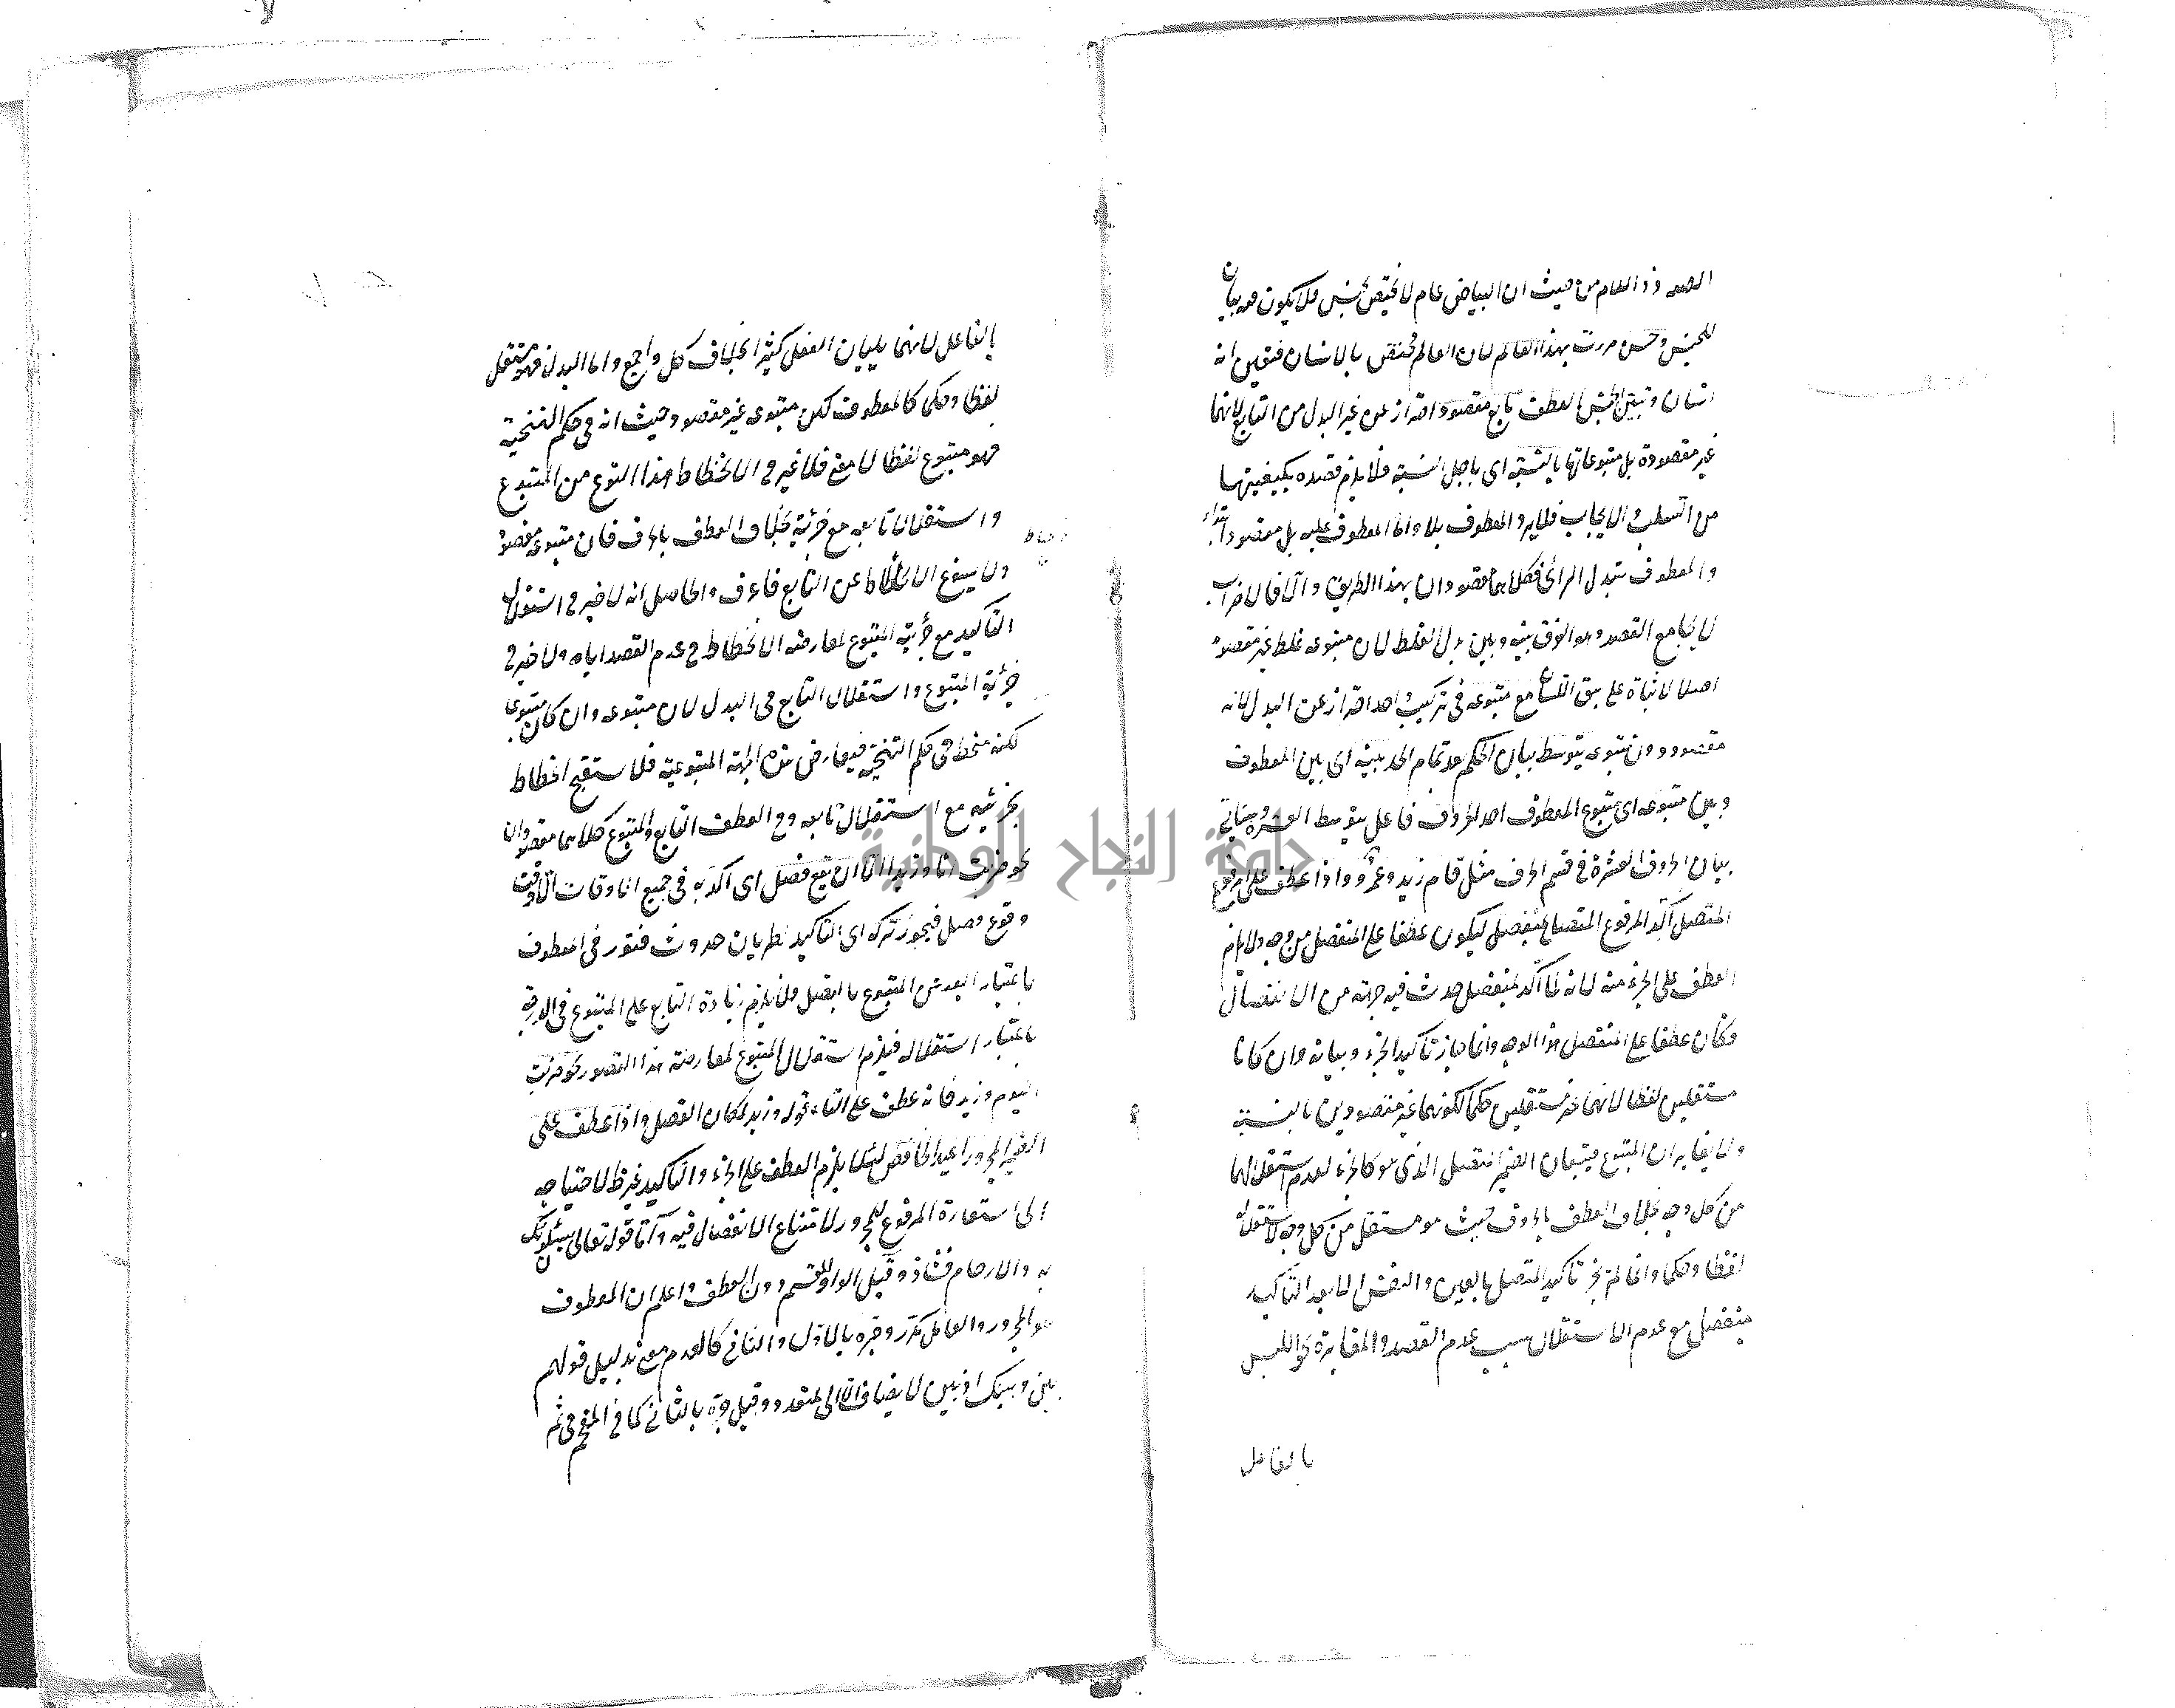 من حيث ان البياض عام لا يختص بجنس فلا يكون فيه بيان
للجنس وحسن مررت بهذا العالم لان العالم مختص بالانسان فتبين انه
انسان وتبين الجنس العطف تابع مقصود احتراز عن غير البدل من التوابع لانها
غير مقصودة بل متبوعاتها بالنسبة اى باصل النسبة فلا يلزم قصده بكيفيتها
من السلب والايجاب فلا يرد المعطوف بلا واما المعطوف عليه بل مقصود ابتداء
والمعطوف بتبدل الرأى فكلاهما مقصودان بهذا الطريق والا فالاضراب
لا يجامع القصد وهو الفرق بينه وبين بدل الغلط لان متبوعه غلط غير مقصود
اصلا مع متبوعه فى تركيب احتراز عن البدل لانه
مقصود دون متبوعه يتوسط بيان الحكم بعد تمام الحد بينه اى بين المعطوف
وبين متبوعه اى متبوع المعطوف احد الحروف فاعل يتوسط العشرة وسيأتى
بيان الحروف العشرة فى قسم الحرف مثل قام زيد وعمرو واذا عطف على المرفوع
المتصل اكد المرفوع المتصل بمنفصل ليكون عطفا على المنفصل من وجه ولا يلزم
العطف على الجزء منه لانه لما اكد بمنفصل حدث فيه جهة من الانفصال
فكان عطفا على المنفصل بهذا الوجه وانما جاز تأكيد الجزء وبيانه وان كانا
مستقلين لفظا لانهما غير مستقلين حكما لكونهما غير مقصودين بالنسبة
ولا يغايران المتبوع فيتبعان الضمير المتصل الذى هو كالجزء لعدم استقلالهما
من كل وجه بخلاف العطف بالحروف حيث هو مستقل من كل وجه لاستقلاله
لفظا وحكما وانما لم يجز تأكيد المتصل بالعين والنفس الا بعد التأكيد
بمنفصل مع عدم الاستقلال بسبب عدم القصد والمغايرة نحو اللبس
بالفاعل
بالفاعل لانهما يليان الفعل كثيرا بخلاف كل واجمع واما البدل فهو مستقل
لفظا وحكما كالمعطوف لكن متبوعه غير مقصود حيث انه فى حكم التنحية
فهو متبوع لفظا لا معنى فلا ضير فى انحطاط هذا النوع من المتبوع
واستقلال تابعه مع جزئية بخلاف العطف بالحرف فان متبوعه مقصود
ولا يسوغ الانحطاط عن التابع فاعرف والحاصل انه لا ضير فى استقلال
التأكيد مع جزئية المتبوع لمعارضة الانحطاط فى عدم القصد اياه ولا ضير فى
جزئية المتبوع واستقلال التابع فى البدل لان متبوعه وان كان متبوعا
لكنه منحط فى حكم التنحية هذه الجهة المتبوعية فلا يستقبح انحطاط
بجزئيته مع استقلال تابعه وفى العطف التابع والمتبوع كلاهما مقصودان
نحو ضربت انا وزيد الا ان يقع فصل اى اكد به فى جميع الاوقات الا وقت
وقوع فصل فيجوز تركه اى التأكيد لطريان حدوث فتور فى المعطوف
باعتبار البعد عن المتبوع بالفصل فلا يلزم زيادة التابع على المتبوع فى الدرجة
باعتبار استقلاله فيلزم استقلال المتبوع لمعارضة هذا القصور نحو ضربت
اليوم وزيد فانه عطف على التاء قوله وزيد لمكان الفصل واذا عطف على
الضمير المجرور اعيد الخافض لئلا يلزم العطف على الجزء والتأكيد غير لاحتياجه
الى استعارة المرفوع للمجرور لامتناع الانفصال فيه واما قوله تعالى تساءلون
به والارحام فشاذ وقيل الواو للقسم دون العطف واعلم ان المعطوف
هو المجرور والعامل مكرر وجره بالاول والثانى كالعدم معنى بدليل قولهم
بينى وبينك اذ بين لا يضاف الا الى المتعدد وقيل جره بالثانى كما فى
جامعة النجاح الوطنية